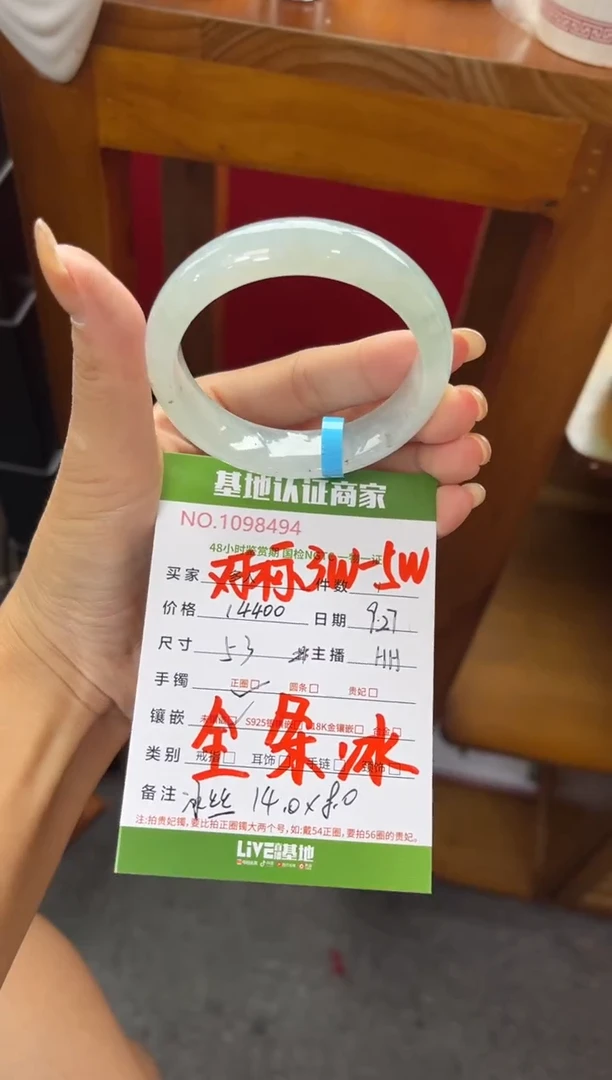 基地认证商家
NO.1098494
48小时鉴赏期 国检NGTC 一物一证
买家 件数
对标3W-5W
价格 14400 日期 9.27
尺寸 53 主播 HH
手镯 正圈 圆条 贵妃
镶嵌 S925银镶嵌 18K金镶嵌 合金
全杂冰
类别 戒指 耳饰 手链 颈饰
备注: 冰丝 14.0×8.0
注:拍贵妃镯,要比拍正圈镯大两个号,如:戴54正圈,要拍56圈的贵妃。
LIVE 基地